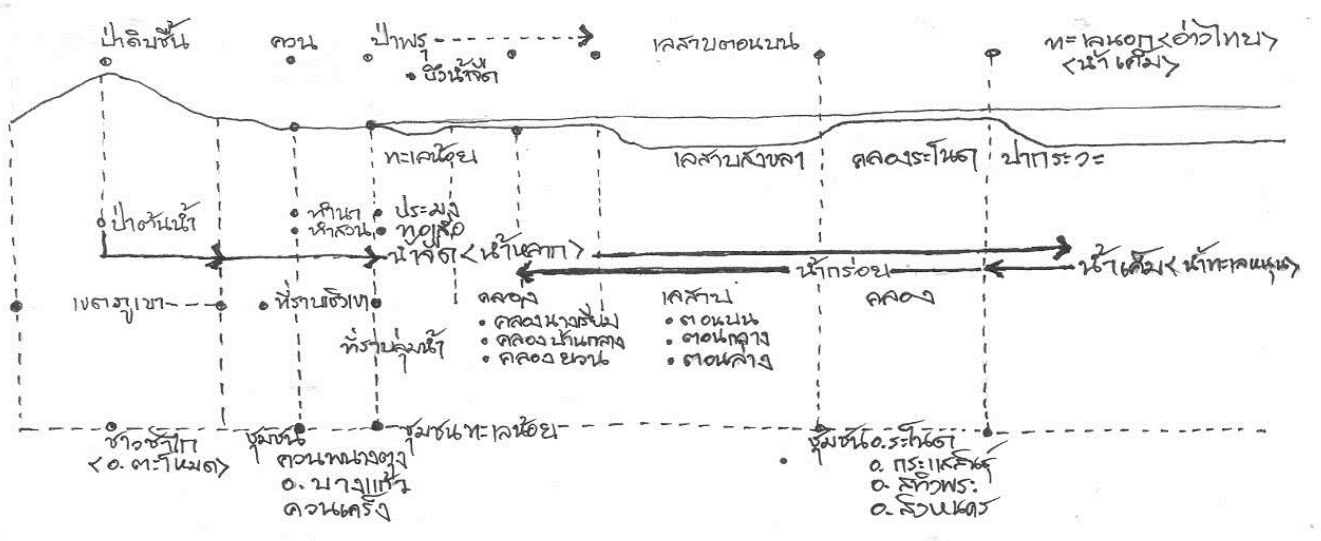 ป่าดิบชื้น
ควน
ป่าพรุ
บึงน้ำจืด
เลสาบตอนบน
ทะเลนอก<อ่าวไทย>
<น้ำเค็ม>
ทะเลน้อย
เลสาบสงขลา
คลองระโนด
ปากระวะ
ป่าต้นน้ำ
ทำนา
ทำสวน
ประมง
ทอเสื่อ
น้ำจืด<น้ำหลาก>
น้ำกร่อย
น้ำเค็ม<น้ำทะเลหนุน>
เขตภูเขา
ที่ราบเชิงเขา
ที่ราบลุ่มน้ำ
คลอง
คลองนางเรียม
คลองบ้านกลาง
คลองยวน
เลสาบ
ตอนบน
ตอนกลาง
ตอนล่าง
คลอง
ชาวซาไก
<อ.ตะโหมด>
ชุมชน
ควนพนางตุง
อ.บางแก้ว
ควนเคร็ง
ชุมชนทะเลน้อย
ชุมชนอ.ระโนด
อ.กระแสสินธุ์
อ.สทิงพระ
อ.สิงหนคร